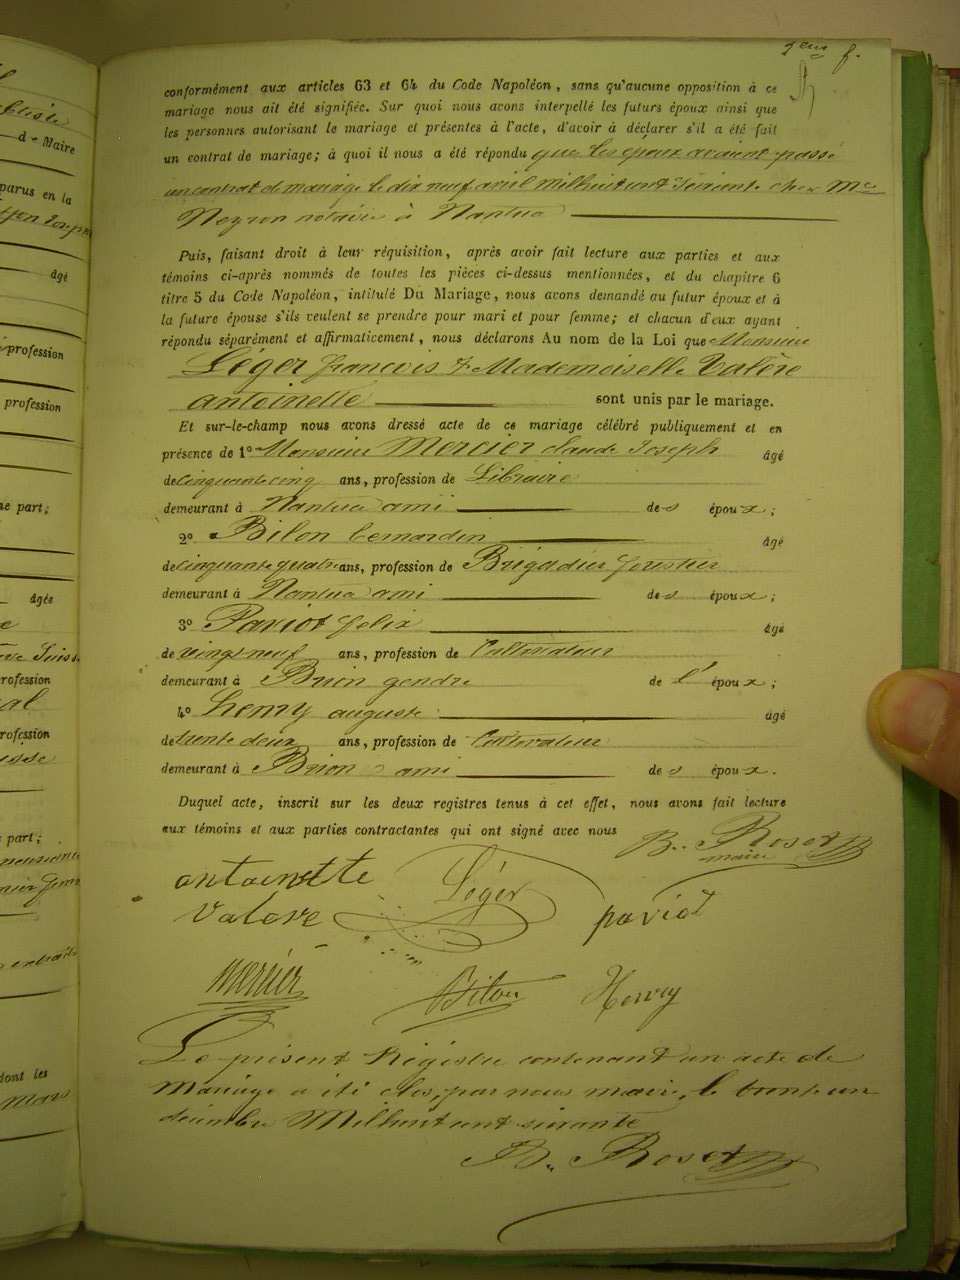 2eme f.
conformément aux articles 63 et 64 du Code Napoléon, sans qu'aucune opposition à ce
mariage nous ait été signifiée. Sur quoi nous avons interpellé les futurs époux ainsi que
les personnes autorisant le mariage et présentes à l'acte, d'avoir à déclarer s'il a été fait
un contrat de mariage; à quoi il nous a été répondu que les epoux avaient passé
un contrat de mariage le dix neuf avril mil huit cent soixante chez Me
Neyron notaire à Nantua
Puis, faisant droit à leur réquisition, après avoir fait lecture aux parties et aux
témoins ci-après nommés de toutes les pièces ci-dessus mentionnées, et du chapitre 6
titre 5 du Code Napoléon, intitulé Du Mariage, nous avons demandé au futur époux et à
la future épouse s'ils veulent se prendre pour mari et pour femme; et chacun d'eux ayant
répondu séparément et affirmativement, nous déclarons Au nom de la Loi que Monsieur
Léger françois & Mademoiselle Valère
antoinette sont unis par le mariage.
Et sur-le-champ nous avons dressé acte de ce mariage célébré publiquement et en
présence de 1o Monsieur Mercier claude Joseph âgé
de cinquante cinq ans, profession de Libraire
demeurant à Nantua ami des époux;
2o Bilon bernardin âgé
de cinquante quatre ans, profession de Brigadier forestier
demeurant à Nantua ami des époux;
3o Paviot felix âgé
de vingt neuf ans, profession de Cultivateur
demeurant à Brion gendre de l'époux;
4o henry auguste âgé
de trente deux ans, profession de Cultivateur
demeurant à Brion ami des époux.
Duquel acte, inscrit sur les deux registres tenus à cet effet, nous avons fait lecture
aux témoins et aux parties contractantes qui ont signé avec nous B. Roset
maire
antoinette Léger
valere paviot
mercier Bilon Henry
Le présent Régistre contenant un acte de
Mariage a été clos, par nous maire, le trente un
décembre Mil huit cent soixante
B. Roset
âgé
profession
profession
part;
âgées
profession
profession
part;